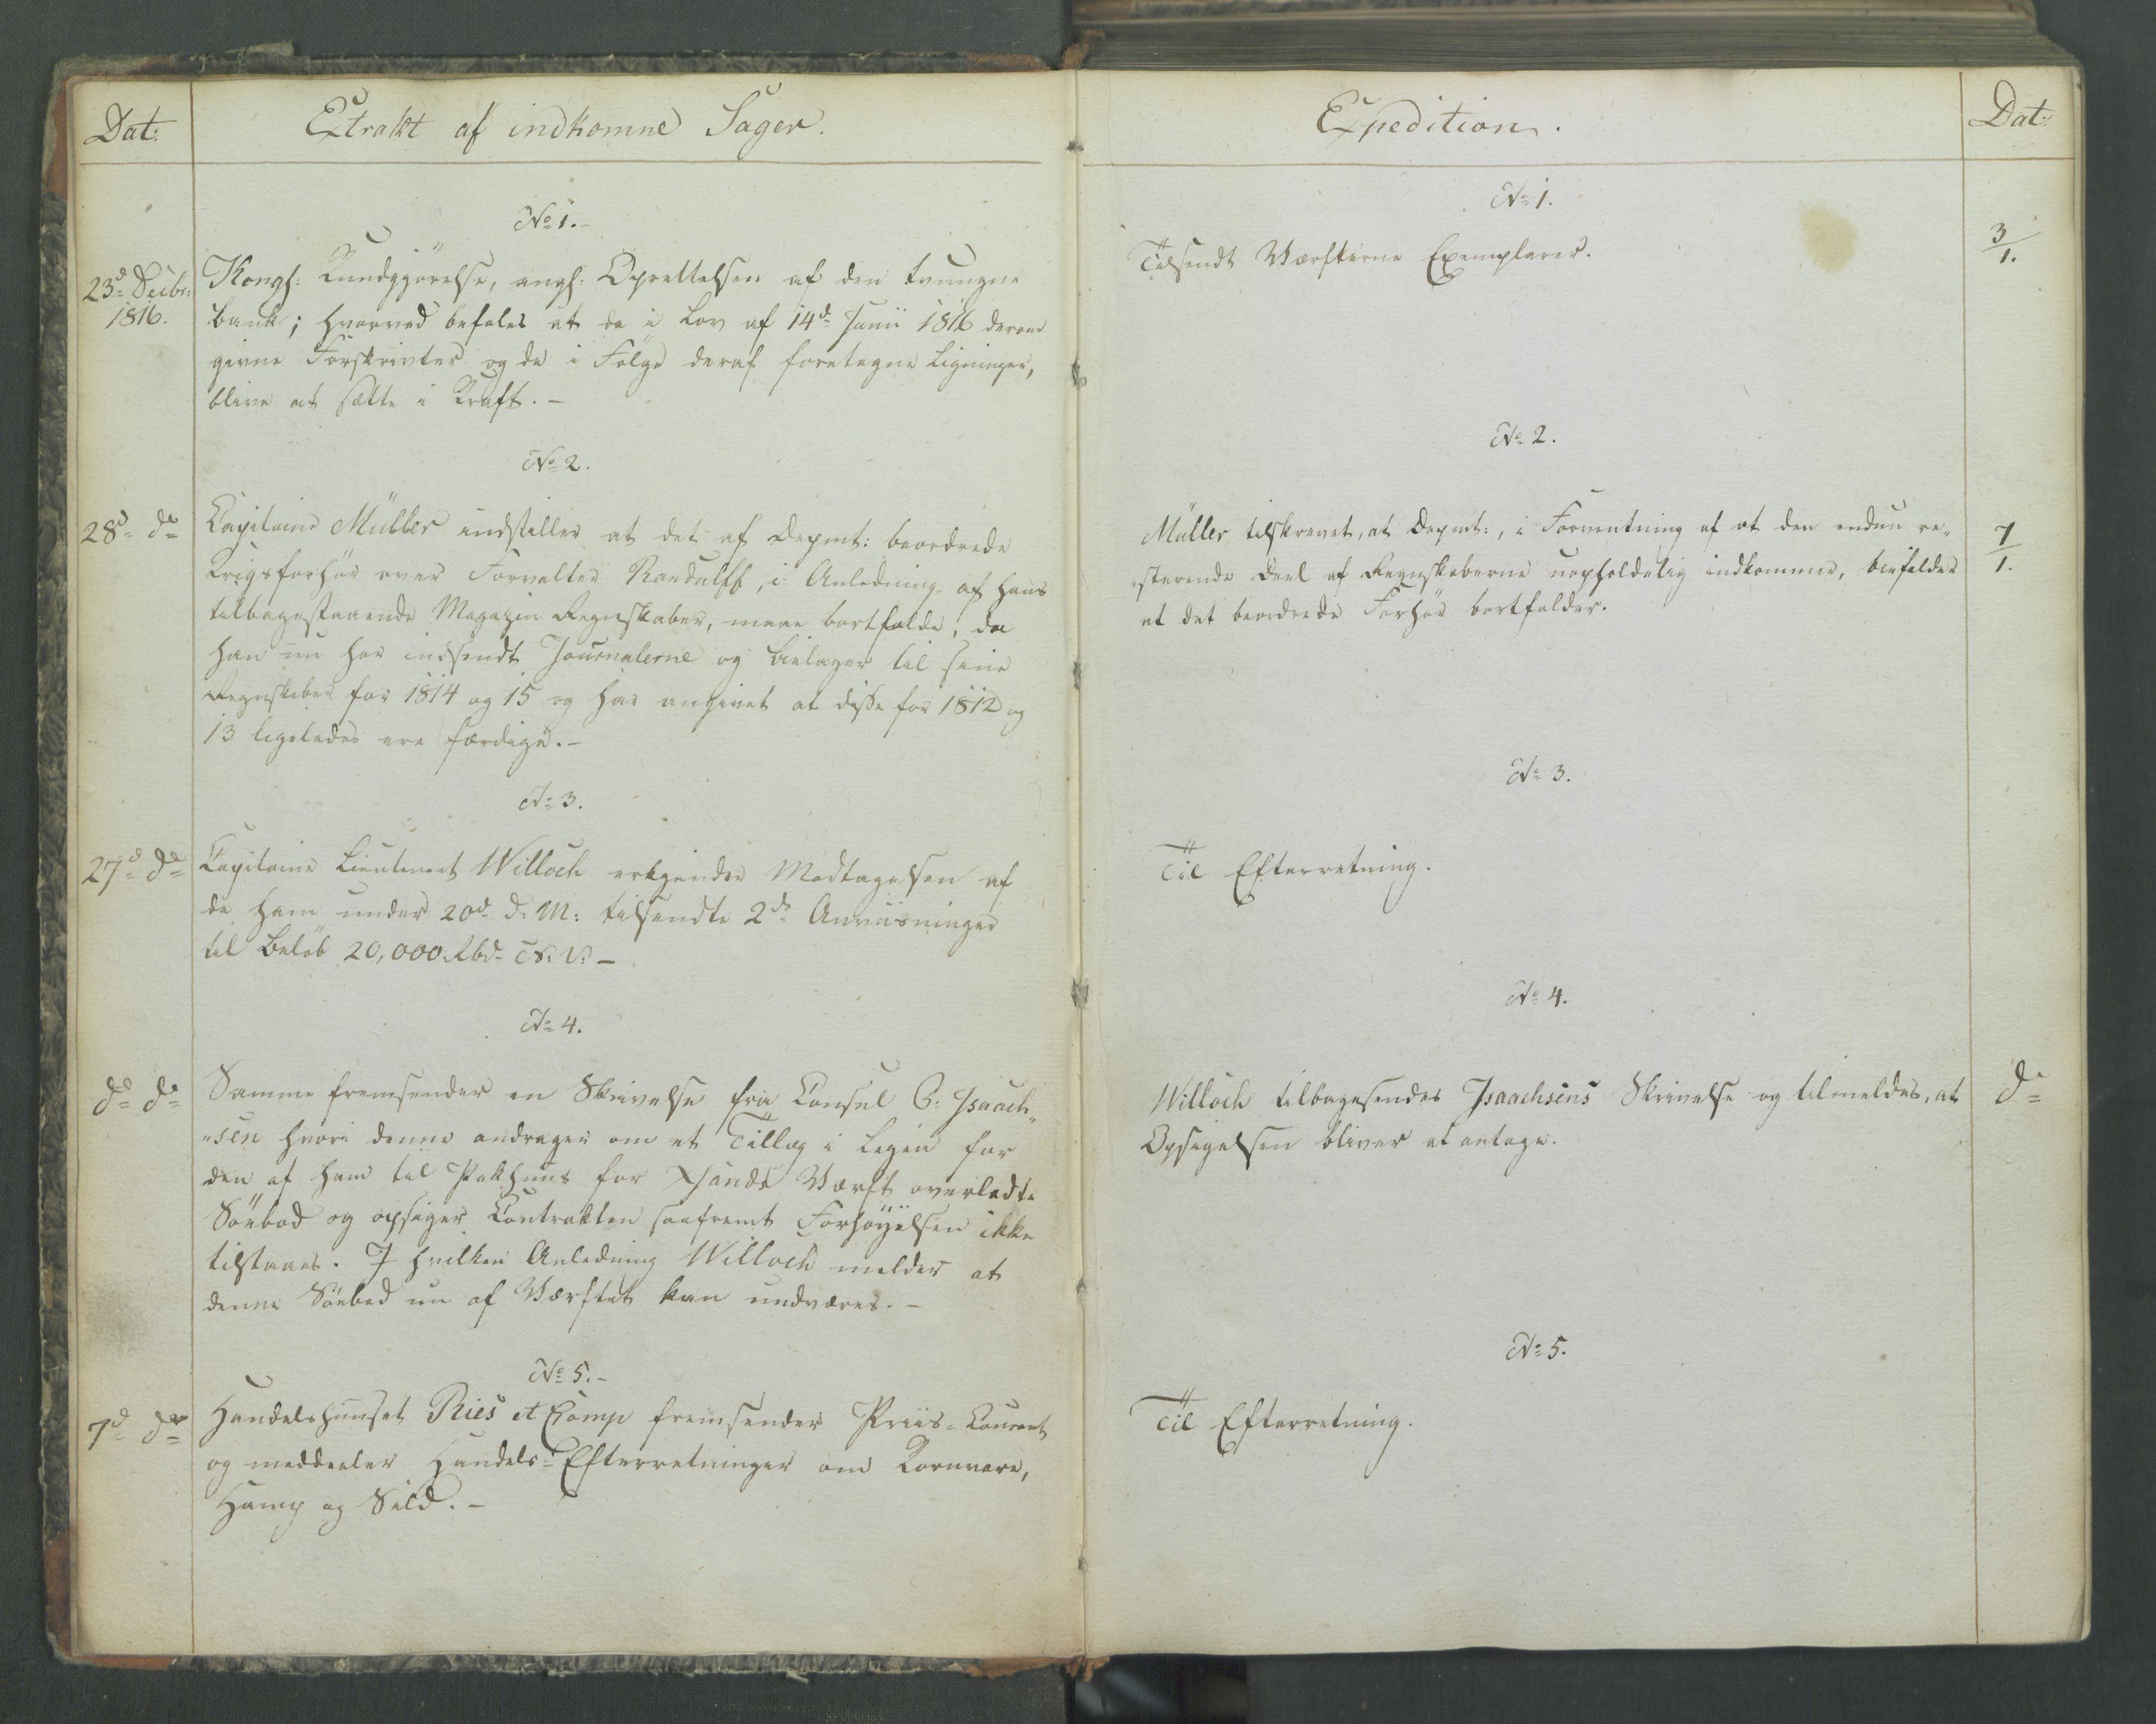 Dat:
Extrakt af indkomne Sager.
No 1.-
23d Decbr:
1816.
Kongl: Kundgjörelse, angl. Oprettelsen af den tvungne
Bank; hvorved befales at de i Lov af 14de Junii 1816 derom
givne Forskrivter og de i Fölge deraf foretagne Ligninger,
blive at sætte i Kraft.-
No 2.
28d do
Capitaine Müller indstiller at det af Depmt: beordrede
Krigsforhör over Forvalter Randulff, i Anledning af hans
tilbagestaaende Magazin Regnskaber, maae bortfalde, da
han nu har indsendt Journalerne og Bielager til sine
Regnskaber for 1814 og 15 og har angivet at disse for 1812 og
13 ligeledes ere færdige.-
No 3.
27d do
Capitaine Lieutenant Willoch erkjender Modtagelsen af
de ham under 20d d: M: tilsendte 2de Anviisninger
til Belöb 20,000 Rbd N. V.-
No 4.
do do
Samme fremsender en Skrivelse fra Consul C: Isaach„
„sen hvori denne andrager om et Tillæg i Leyen for
den af ham til Pakhuus for Xsands Værft overladte
Söebod og opsiger Contrakten saafremt Forhöyelsen ikke
tilstaaes. I hvilken Anledning Willoch melder at
denne Söebod nu af Værftet kan undværes.-
No 5.-
7d do
Handelshuuset Ries et Comp fremsender Priis-Courant
og meddeeler Handels-Efterretninger om Kornvare,
Hamp og Sild.-
Expedition.
Dat:
No 1.
Tilsendt Værfterne Exemplarer.
3/1.
No 2.
Müller tilskrevet, at Depmt:, i Formentning af at den endnu re„
„sterende Deel af Regnskaberne uopholdelig indkommer, biefalder
at det beordrede Forhör bortfalder.
7/1.
No 3.
Til Efterretning.
No 4.
Willoch tilbagesendes Isaachsens Skrivelse og tilmeldes, at
Opsigelsen bliver at antage.
do
No 5.
Til Efterretning.